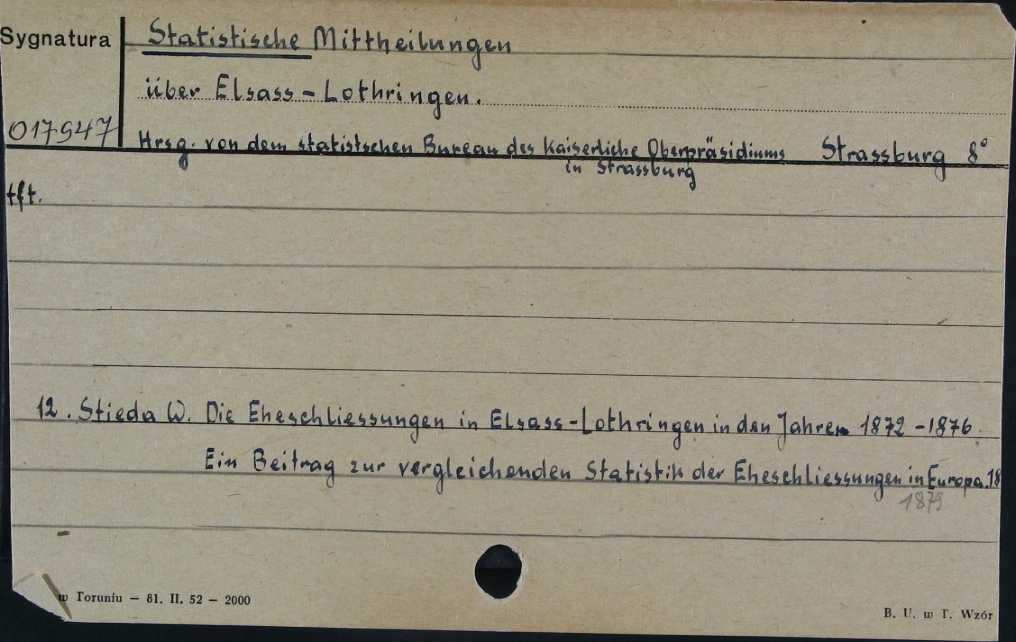 Sygnatura
Statistische Mittheilungen
über Elsass-Lothringen.
017947
Hrsg. von dem statistschen Bureau des Kaiserliche Oberpräsidiums Strassburg 8°
in Strassburg
tft.
12. Stieda W. Die Eheschliessungen in Elsass-Lothringen in den Jahren 1872-1876.
Ein Beitrag zur vergleichenden Statistik der Eheschliessungen in Europa. 18
1879
w Toruniu — 81. II. 52 — 2000
B. U. w T. Wzór